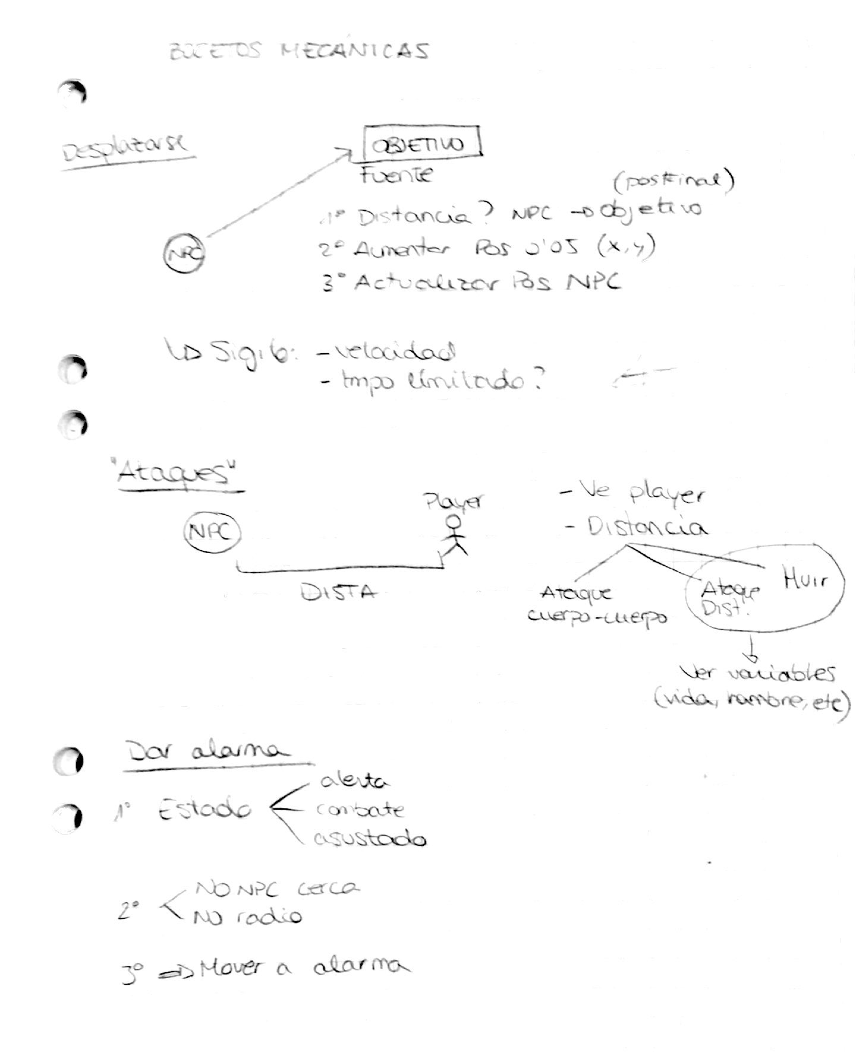 BOCETOS MECÁNICAS
Desplazarse
OBJETIVO
Fuente
(postfinal)
1º Distancia? NPC → Objetivo
NPC
2º Aumentar Pos 0'05 (x,y)
3º Actualizar Pos NPC
↳ Sigilo: - velocidad
- tmpo límitado?
"Ataques"
NPC
Player
- Ve player
- Distancia
DISTA
Ataque
cuerpo-cuerpo
Ataque
Dist.
Huir
Ver variables
(vida, hambre, etc)
Dar alarma
1º Estado
alerta
combate
asustado
2º
NO NPC cerca
NO radio
3º ⇒ Mover a alarma